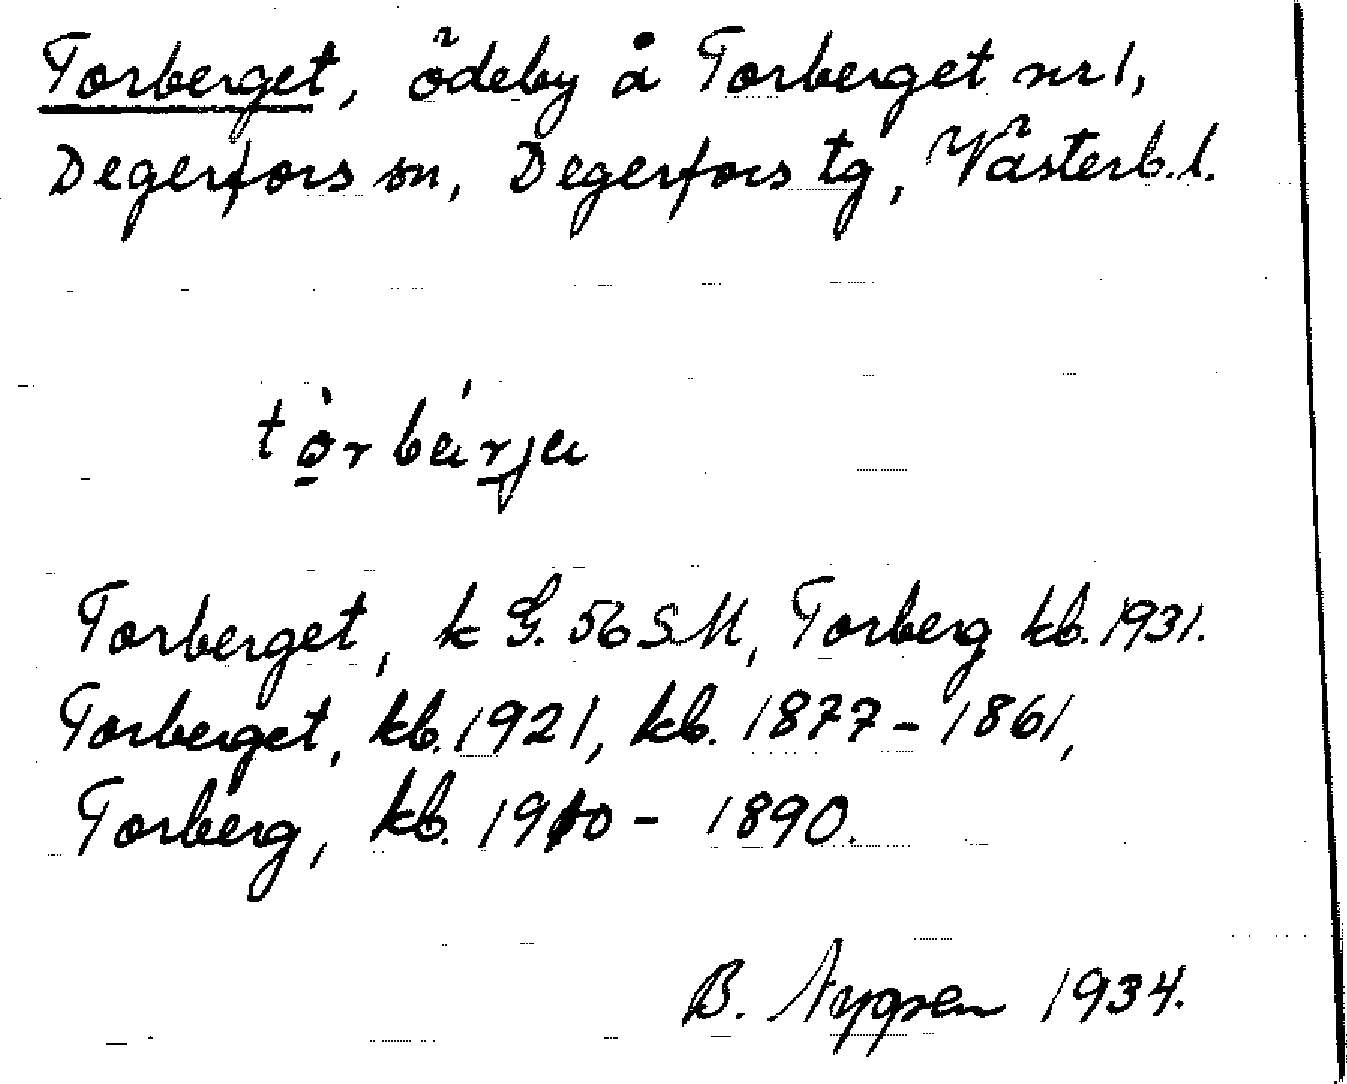 Torberget, ödeby å Torberget nr 1,
Degerfors sn, Degerfors tg, Västerb. l.
tò̠rbá r̠ja
Torberget, k G. 56 S.M, Torberg kb. 1931.
Torberget, kb. 1921, kb. 1877-1861,
Torberg, kb. 1910 - 1890.
B. Nygren 1934.